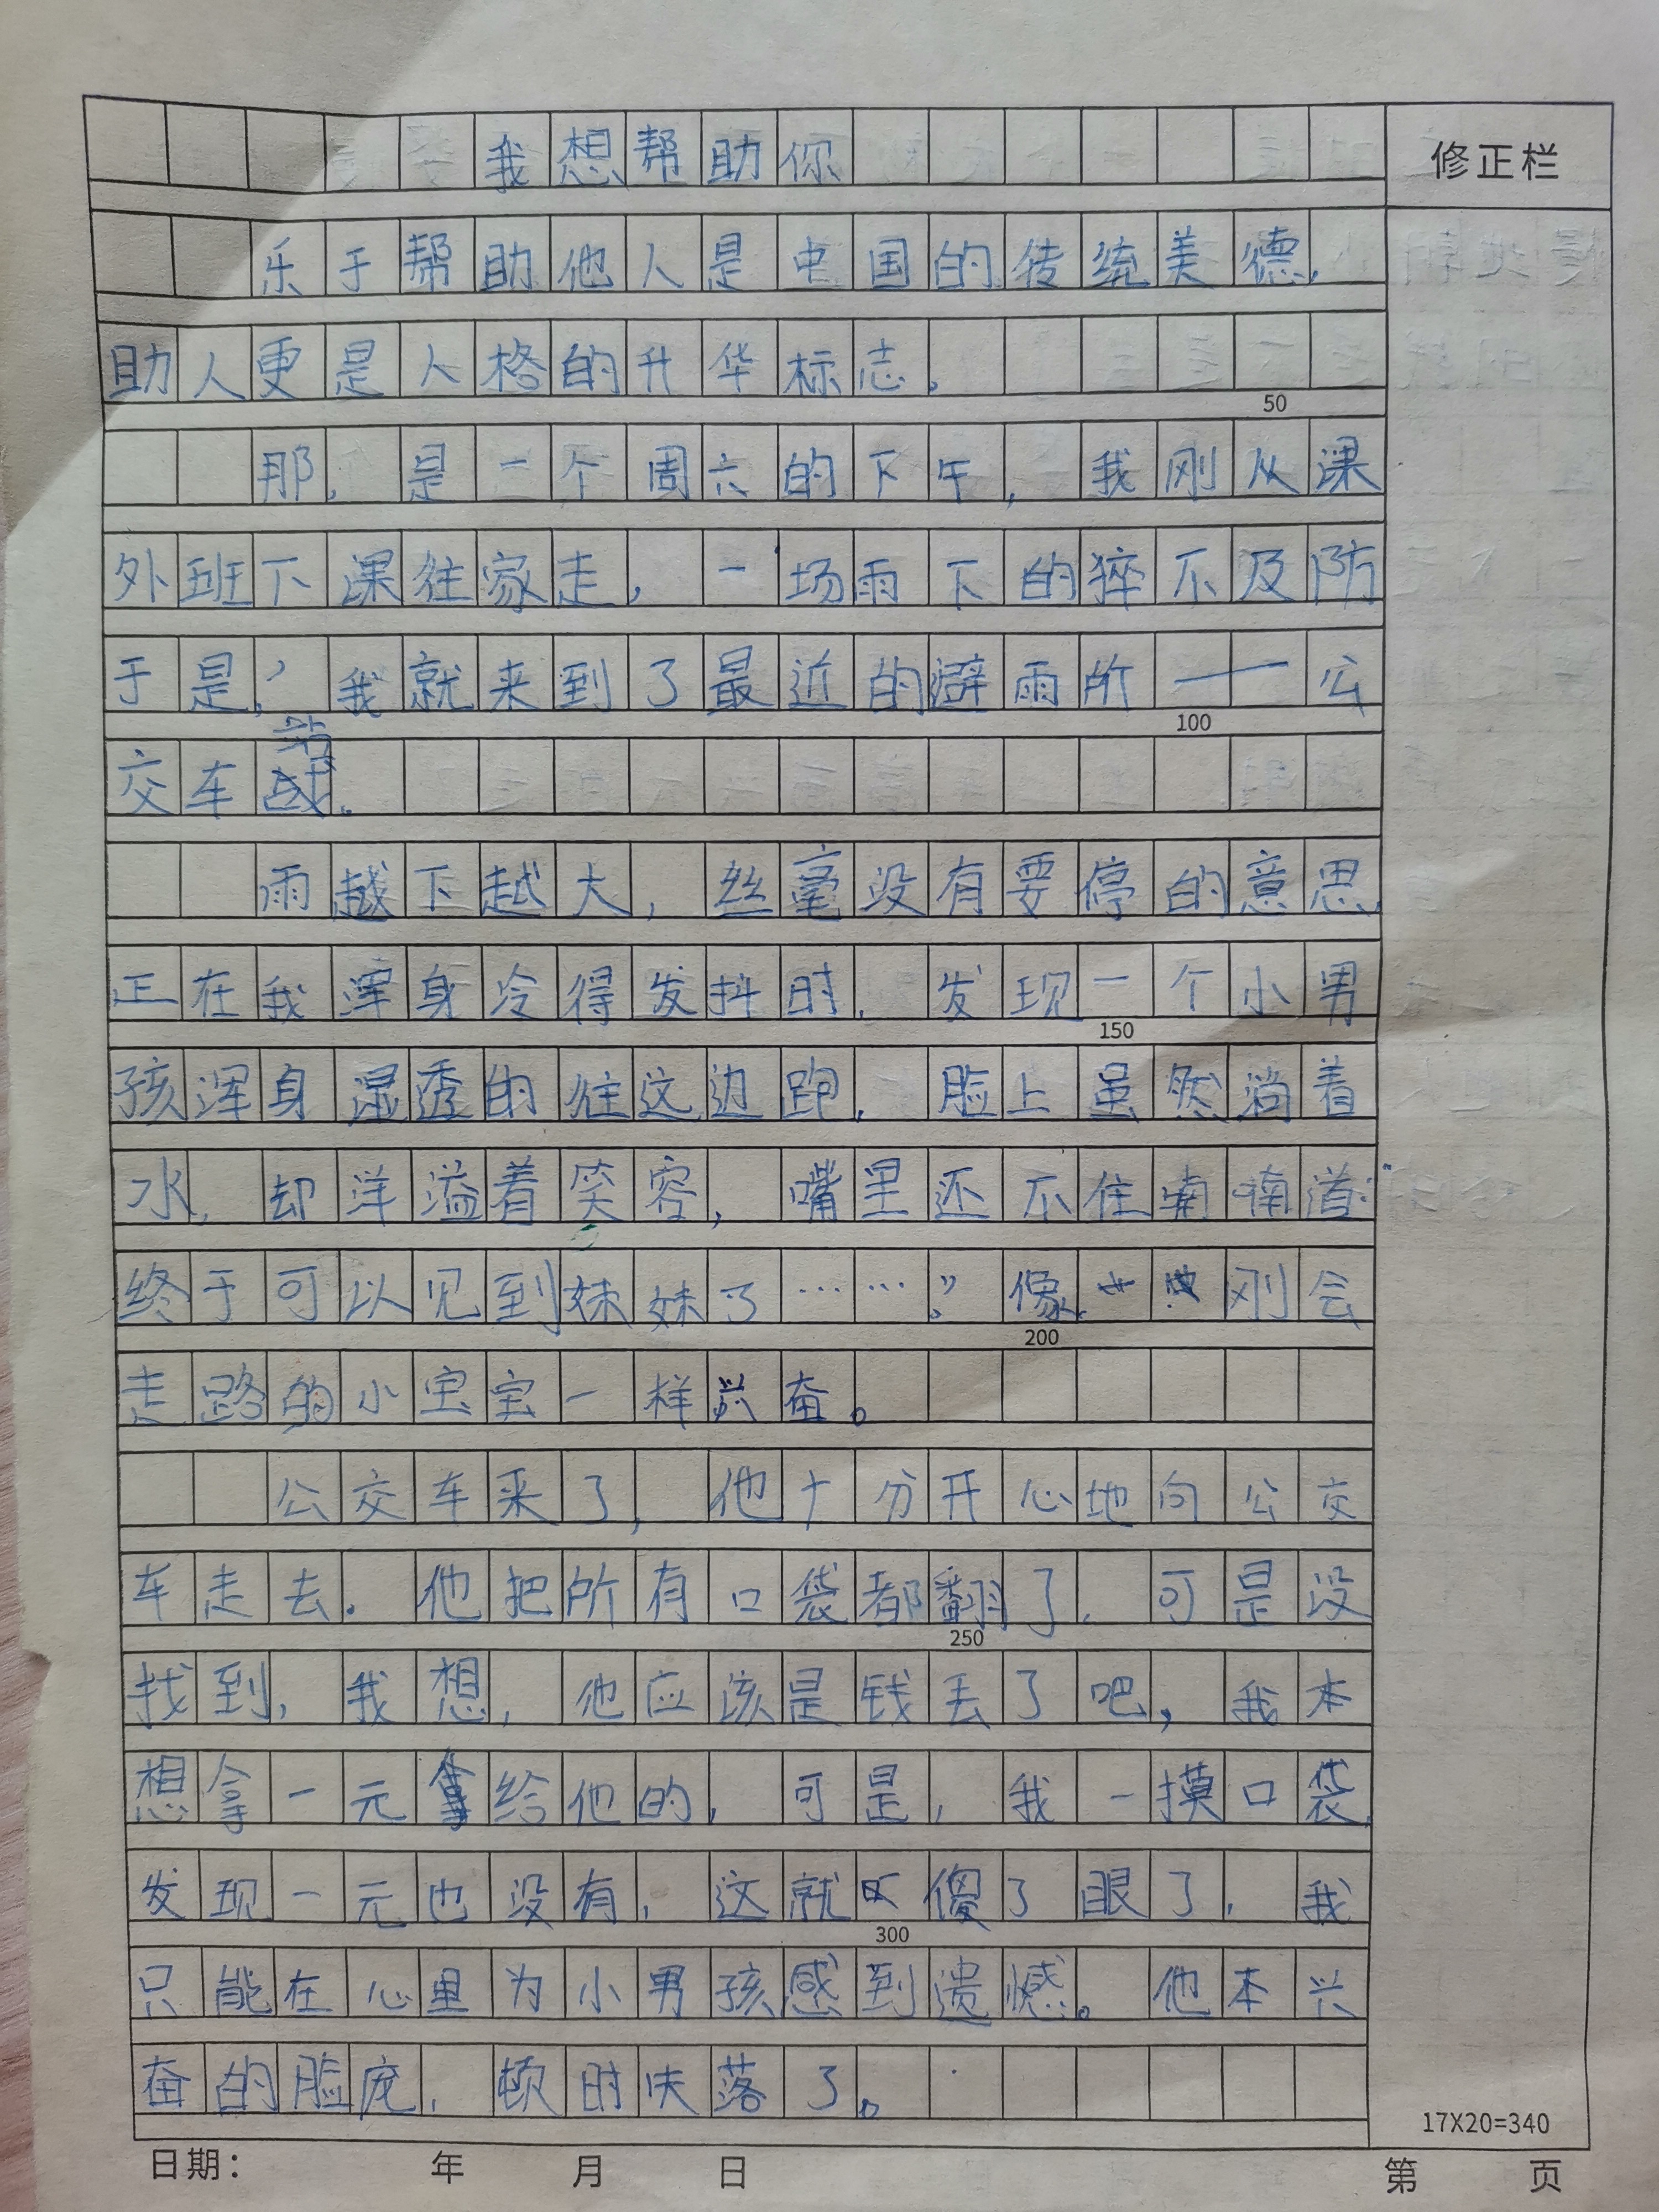 我想帮助你
修正栏
乐于帮助他人是中国的传统美德,
助人更是人格的升华标志。
50
那,是一个周六的下午,我刚从课
外班下课往家走,一场雨下的猝不及防
于是,我就来到了最近的避雨所——公
100
站
交车。
雨越下越大,丝毫没有要停的意思,
正在我浑身冷得发抖时,发现一个小男
150
孩浑身湿透的往这边跑,脸上虽然淌着
水,却洋溢着笑容,嘴里还不住喃喃道:
终于可以见到妹妹了……”像刚会
200
走路的小宝宝一样兴奋。
公交车来了,他十分开心地向公交
车走去。他把所有口袋都翻了,可是没
250
找到,我想,他应该是钱丢了吧,我本
想拿一元拿给他的,可是,我一摸口袋,
发现一元也没有,这就傻了眼了,我
300
只能在心里为小男孩感到遗憾。他本兴
奋的脸庞,顿时失落了。
17X20=340
日期: 年 月 日
第 页